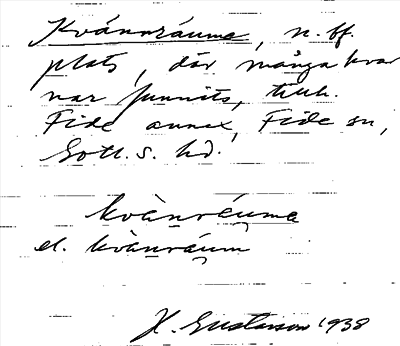 Kvännräume, n. pf.
plats, där många kvar
nar funnits, tillh.
Fide annex, Fide sn,
Gotl. s. hd.
kvànréuma
el. kvànráum
H. Gustavson 1938